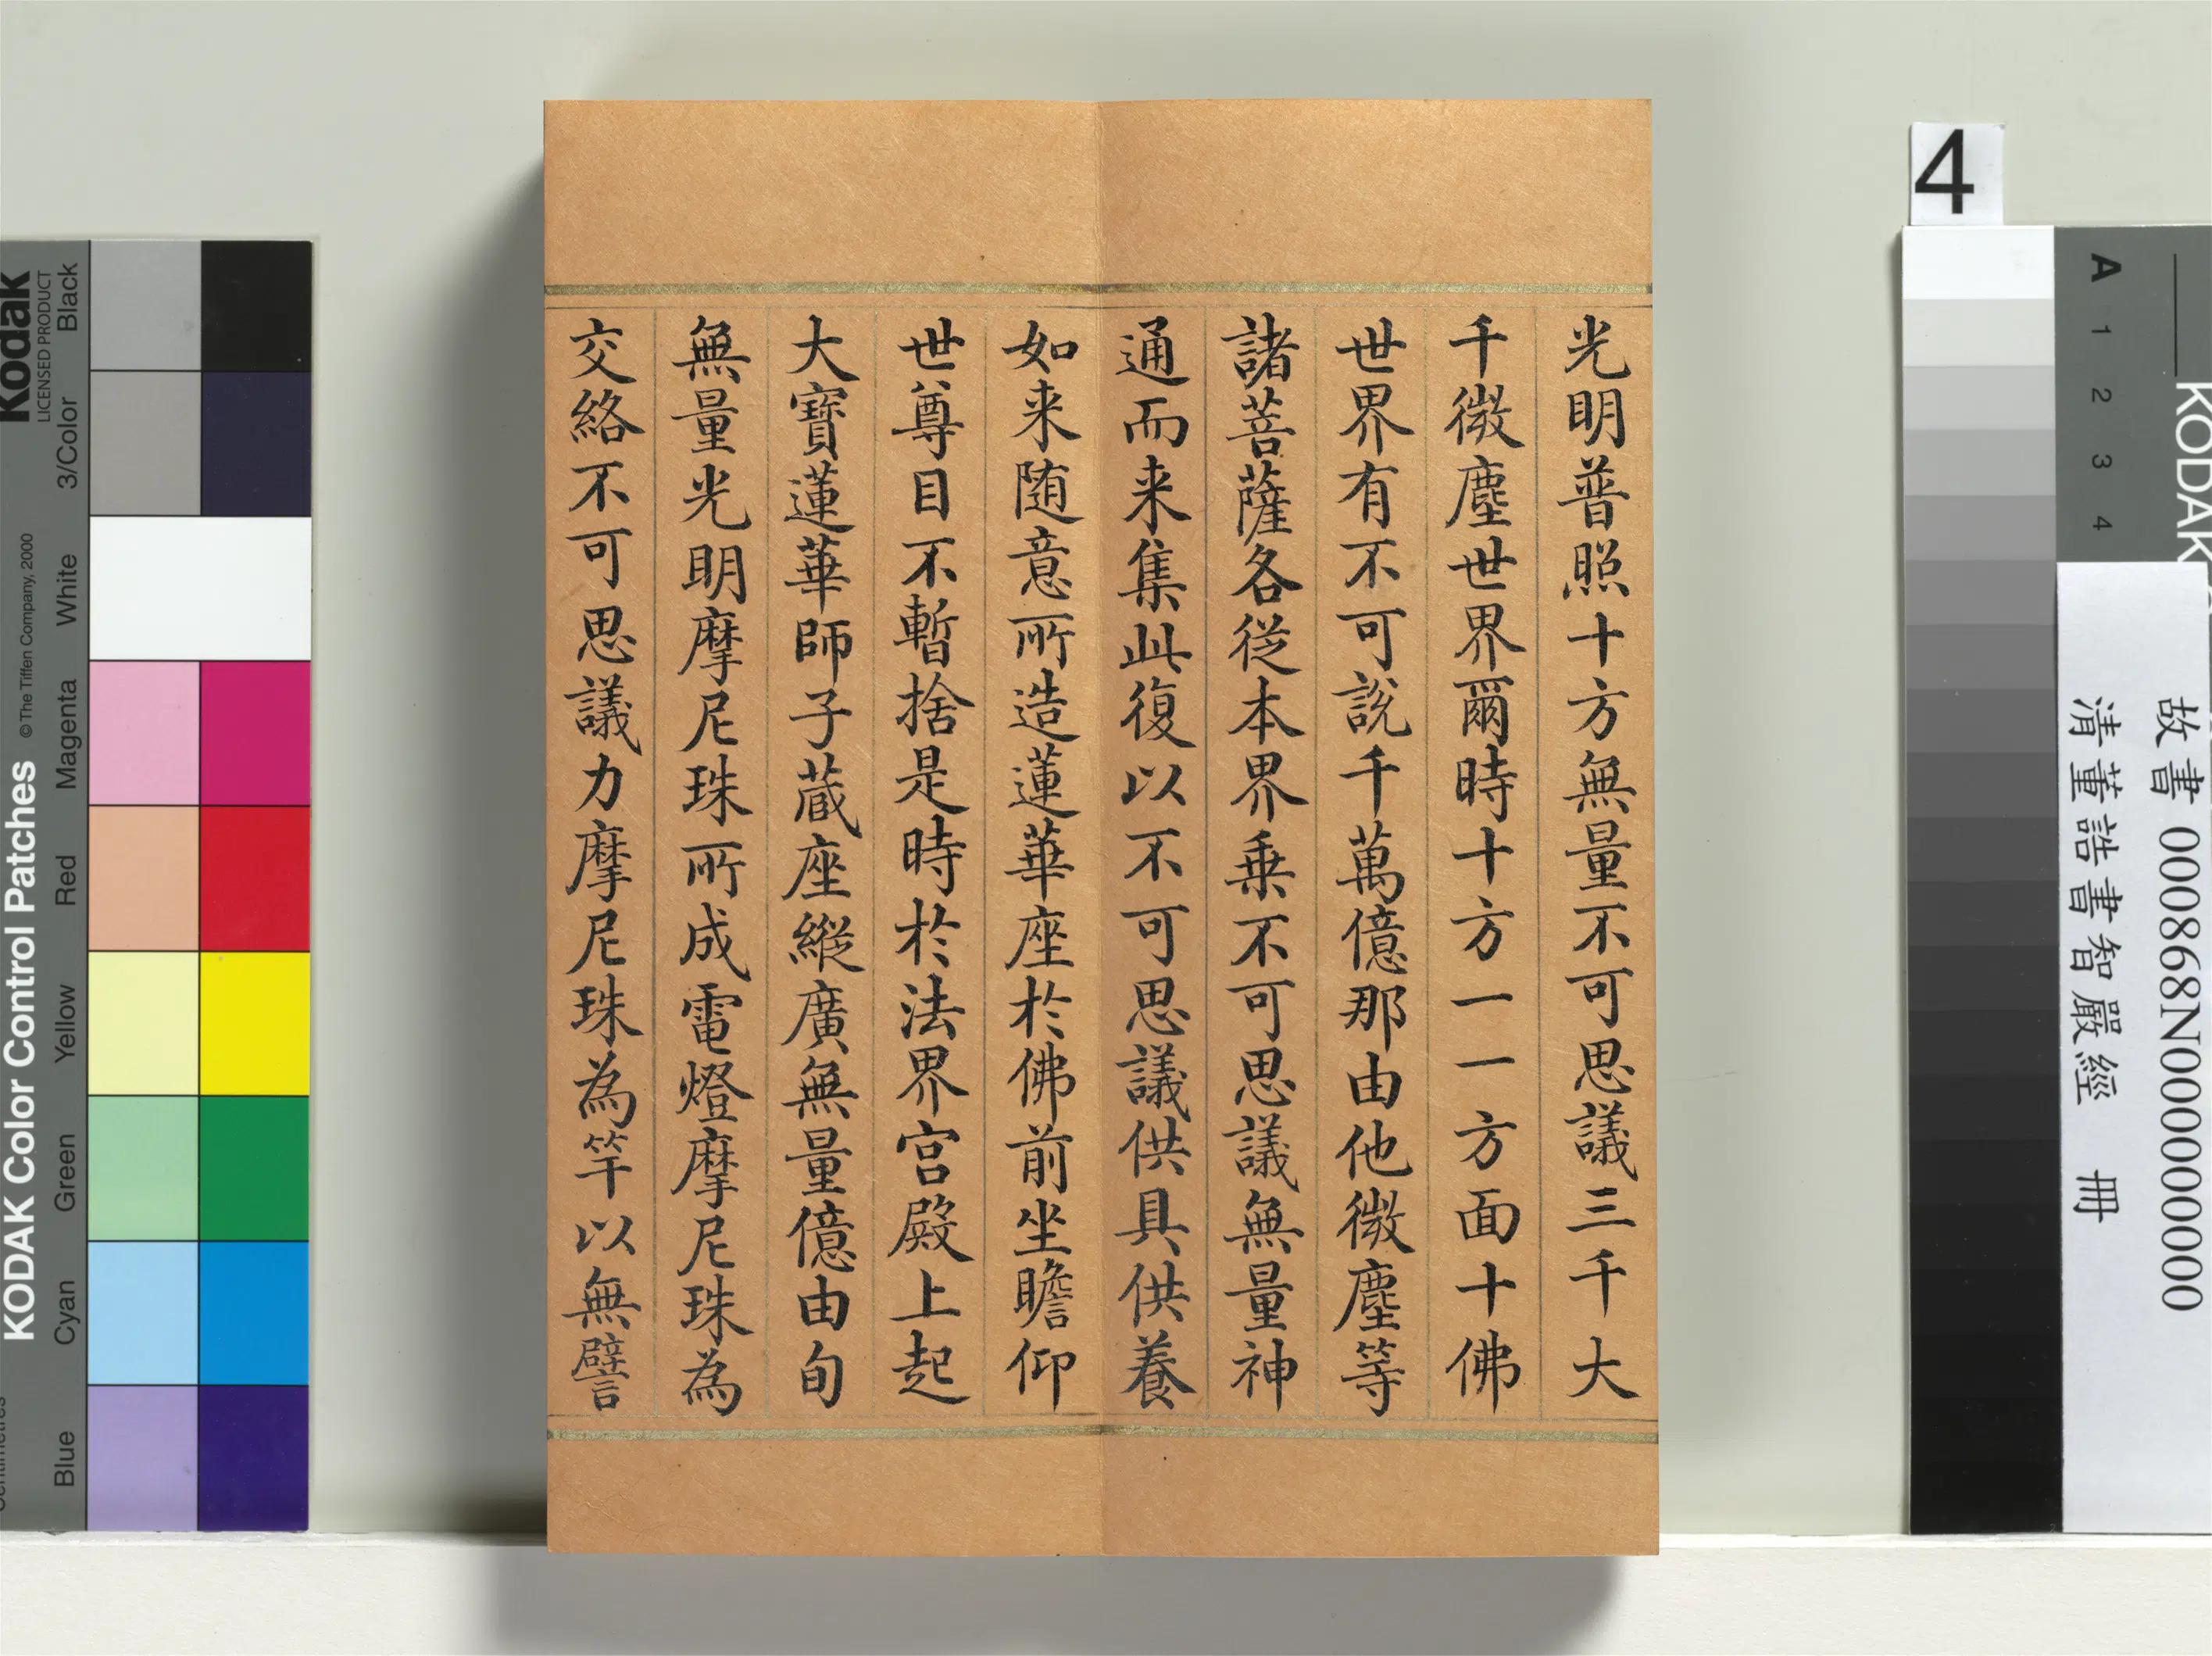 光明普照十方無量不可思議三千大
千微塵世界爾時十方一一方面十佛
世界有不可說千萬億那由他微塵等
諸菩薩各從本界乗不可思議無量神
通而来集此復以不可思議供具供養
如来随意所造蓮華座於佛前坐瞻仰
世尊目不暫捨是時於法界宮殿上起
大寶蓮華師子蔵座縱廣無量億由旬
無量光明摩尼珠所成電燈摩尼珠為
交絡不可思議力摩尼珠為竿以無譬
4
故書 000868N000000000
清董誥書智嚴經 冊
KODAK
A 1 2 3 4
Kodak
LICENSED PRODUCT
KODAK Color Control Patches
© The Tiffen Company, 2000
Black
3/Color
White
Magenta
Red
Yellow
Green
Cyan
Blue